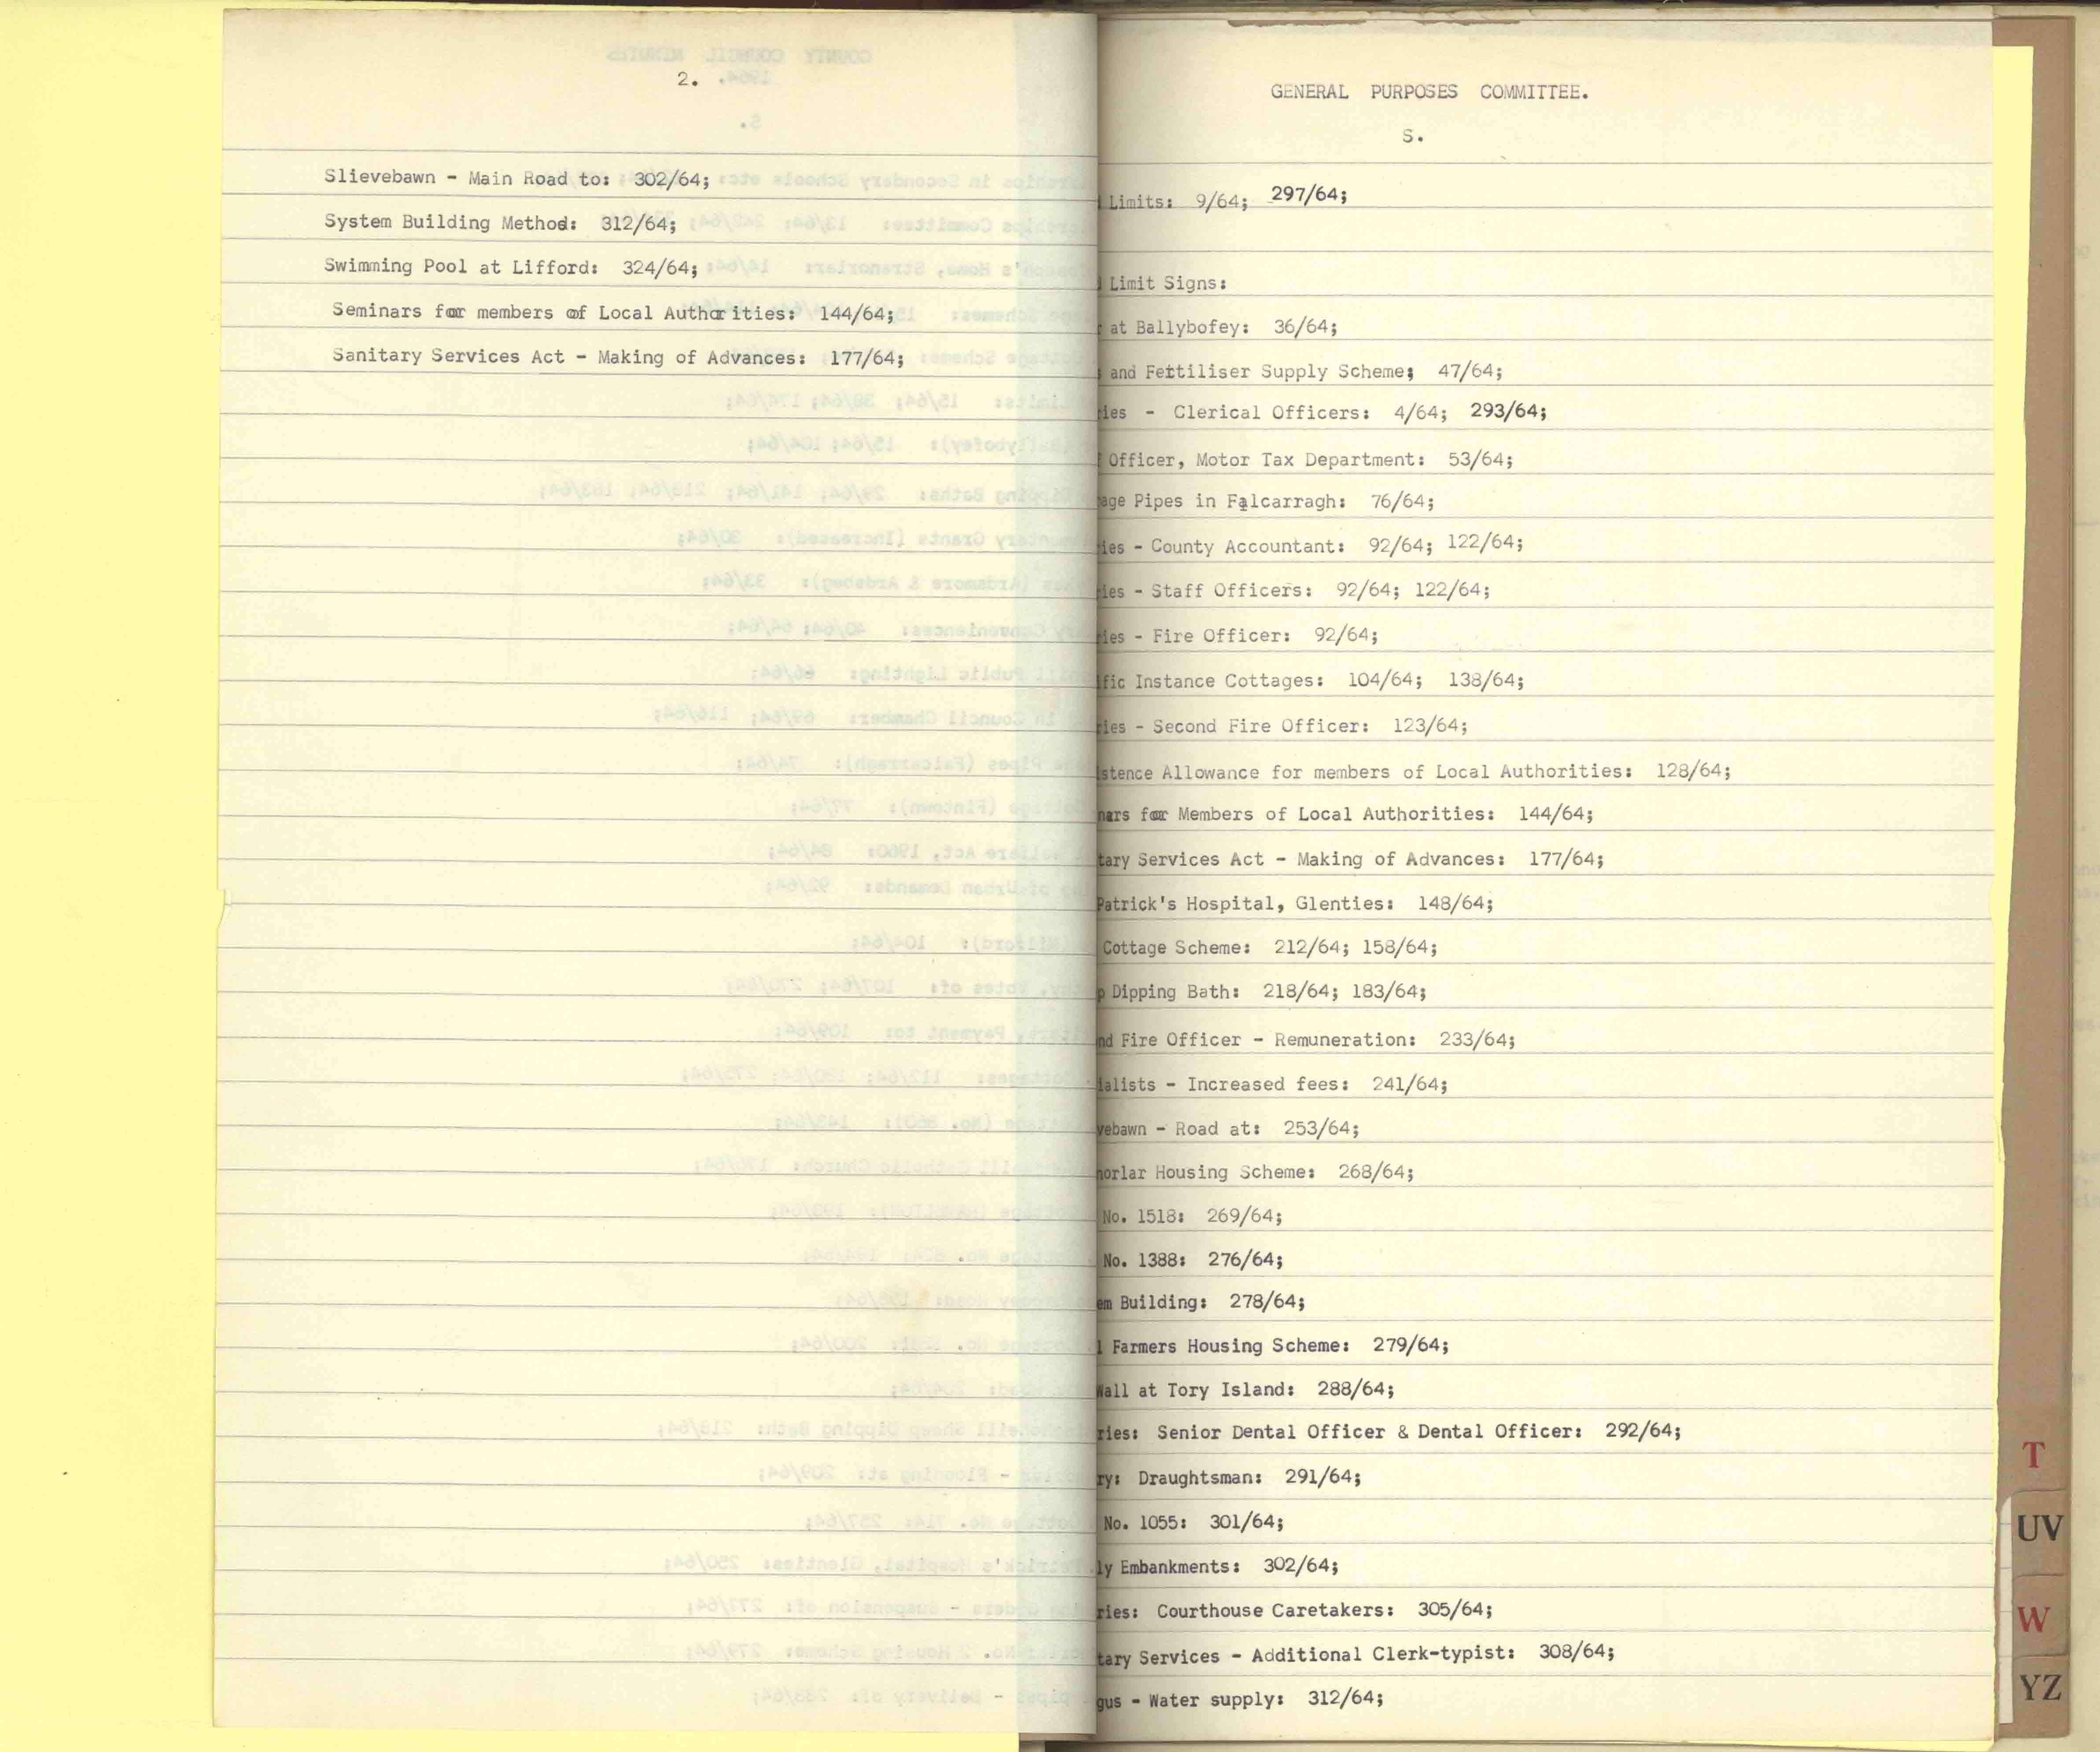 2.
Slievebawn - Main Road to: 302/64;
System Building Method: 312/64;
Swimming Pool at Lifford: 324/64;
Seminars for members of Local Authorities: 144/64;
Sanitary Services Act - Making of Advances: 177/64;
GENERAL PURPOSES COMMITTEE.
S.
Limits: 9/64; 297/64;
Limit Signs:
at Ballybofey: 36/64;
and Fettiliser Supply Scheme; 47/64;
ies - Clerical Officers: 4/64; 293/64;
Officer, Motor Tax Department: 53/64;
age Pipes in Falcarragh: 76/64;
ies - County Accountant: 92/64; 122/64;
ies - Staff Officers: 92/64; 122/64;
ies - Fire Officer: 92/64;
fic Instance Cottages: 104/64; 138/64;
ries - Second Fire Officer: 123/64;
stence Allowance for members of Local Authorities: 128/64;
nars for Members of Local Authorities: 144/64;
tary Services Act - Making of Advances: 177/64;
Patrick's Hospital, Glenties: 148/64;
Cottage Scheme: 212/64; 158/64;
p Dipping Bath: 218/64; 183/64;
nd Fire Officer - Remuneration: 233/64;
ialists - Increased fees: 241/64;
vebawn - Road at: 253/64;
norlar Housing Scheme: 268/64;
No. 1518: 269/64;
No. 1388: 276/64;
em Building: 278/64;
l Farmers Housing Scheme: 279/64;
Wall at Tory Island: 288/64;
ries: Senior Dental Officer & Dental Officer: 292/64;
ry: Draughtsman: 291/64;
No. 1055: 301/64;
ly Embankments: 302/64;
ries: Courthouse Caretakers: 305/64;
tary Services - Additional Clerk-typist: 308/64;
gus - Water supply: 312/64;
T
UV
W
YZ